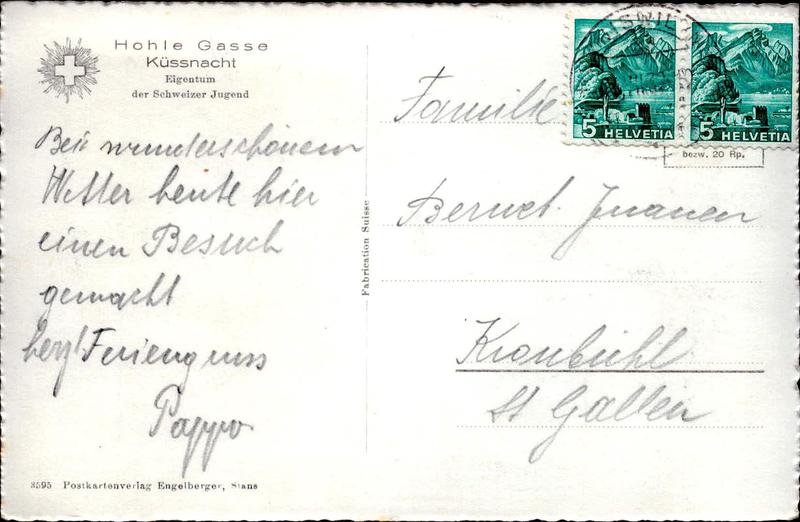 Hohle Gasse
Küssnacht
Eigentum
der Schweizer Jugend
Bei wunderschönem
Wetter heute hier
einen Besuch
gemacht
herzl Feriengruss
Pappo
3595 Postkartenverlag Engelberger, Stans
Fabrication Suisse
5 HELVETIA
5 HELVETIA
bezw. 20 Rp.
Familie
Bernet
Kronbühl
St Gallen